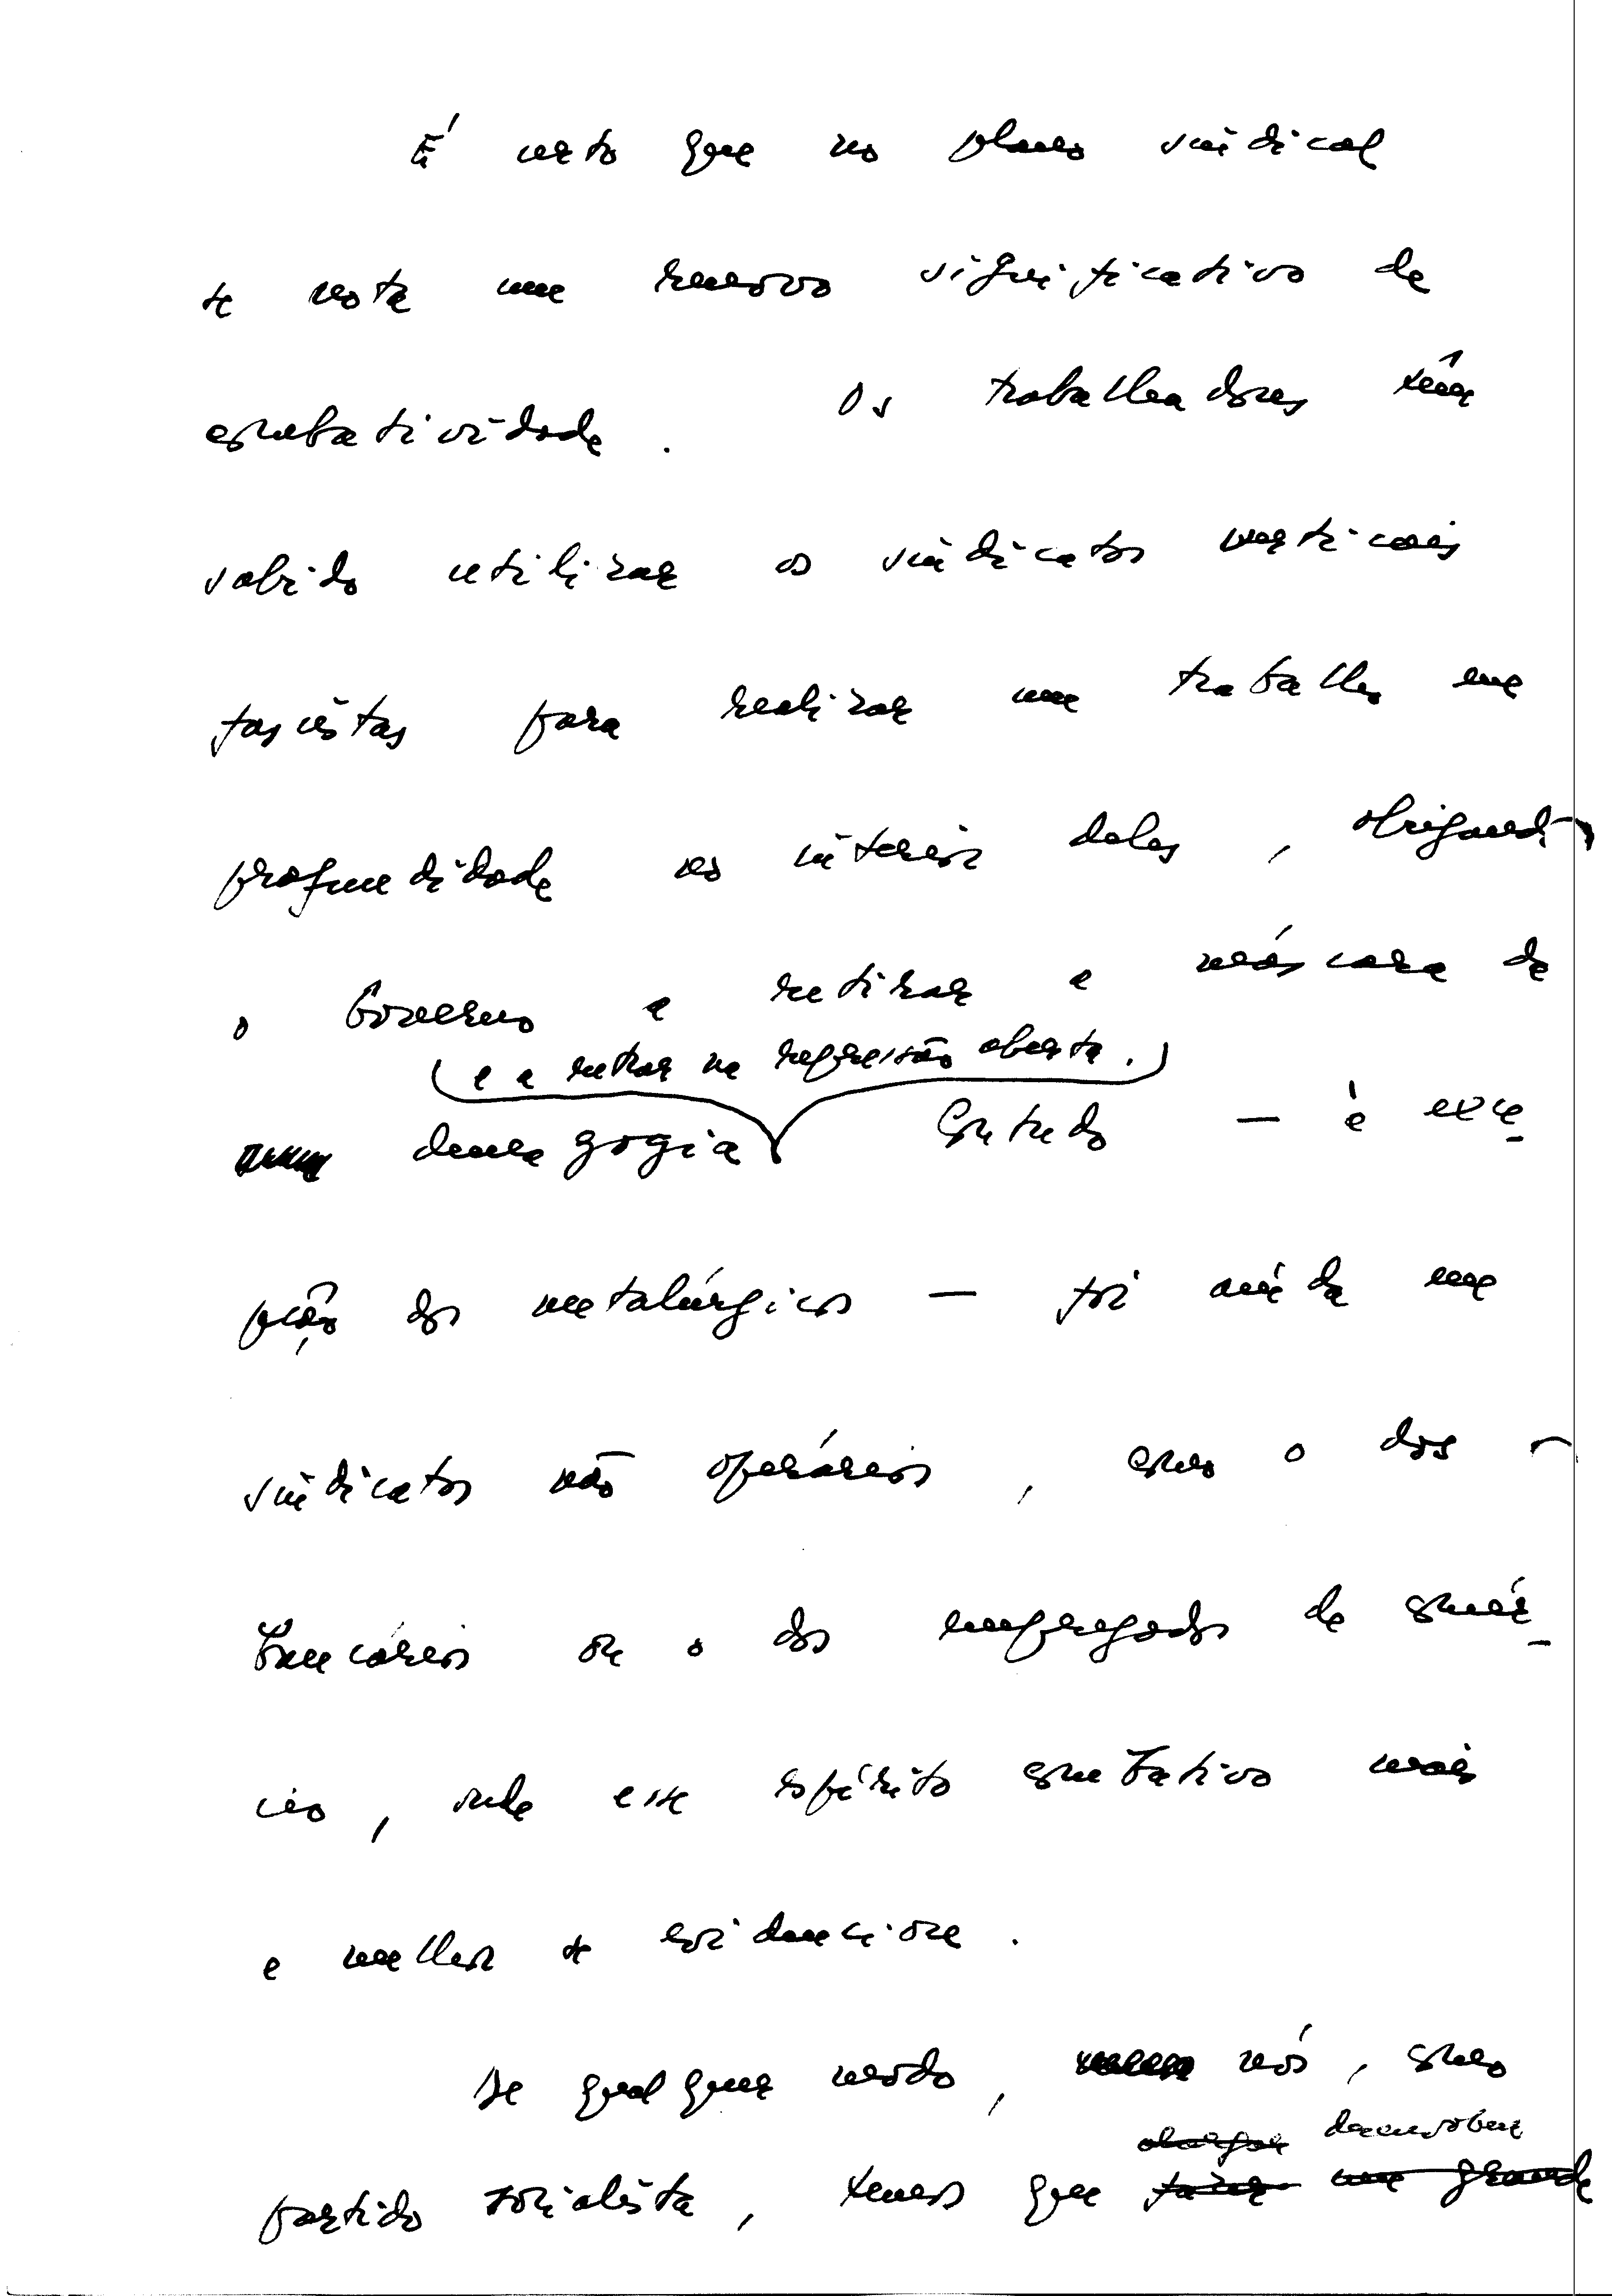 É certo que no plano sindical
se nota um renovo significativo de
combatividade. Os trabalhadores têm
sabido utilizar os sindicatos verticais
fascistas para realizar um trabalho em
profundidade no interior deles, obrigando
o Governo a retirar a máscara de
(e a entrar na repressão aberta.)
demagogia Contudo — à exce
pção dos metalúrgicos — foi ainda em
sindicatos não operários, como o dos
bancários ou o dos empregados de comér
cio, onde esse espírito combativo mais
e melhor se evidenciou.
De qualquer modo, nós, como
alargar desenvolver
partido socialista, temos que fazer um grande